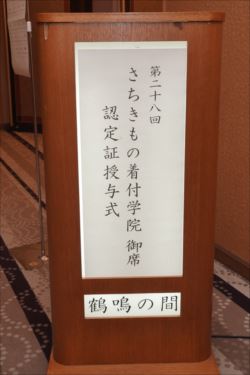 第二十八回
さちきもの着付学院 御席
認定証授与式
鶴鳴の間